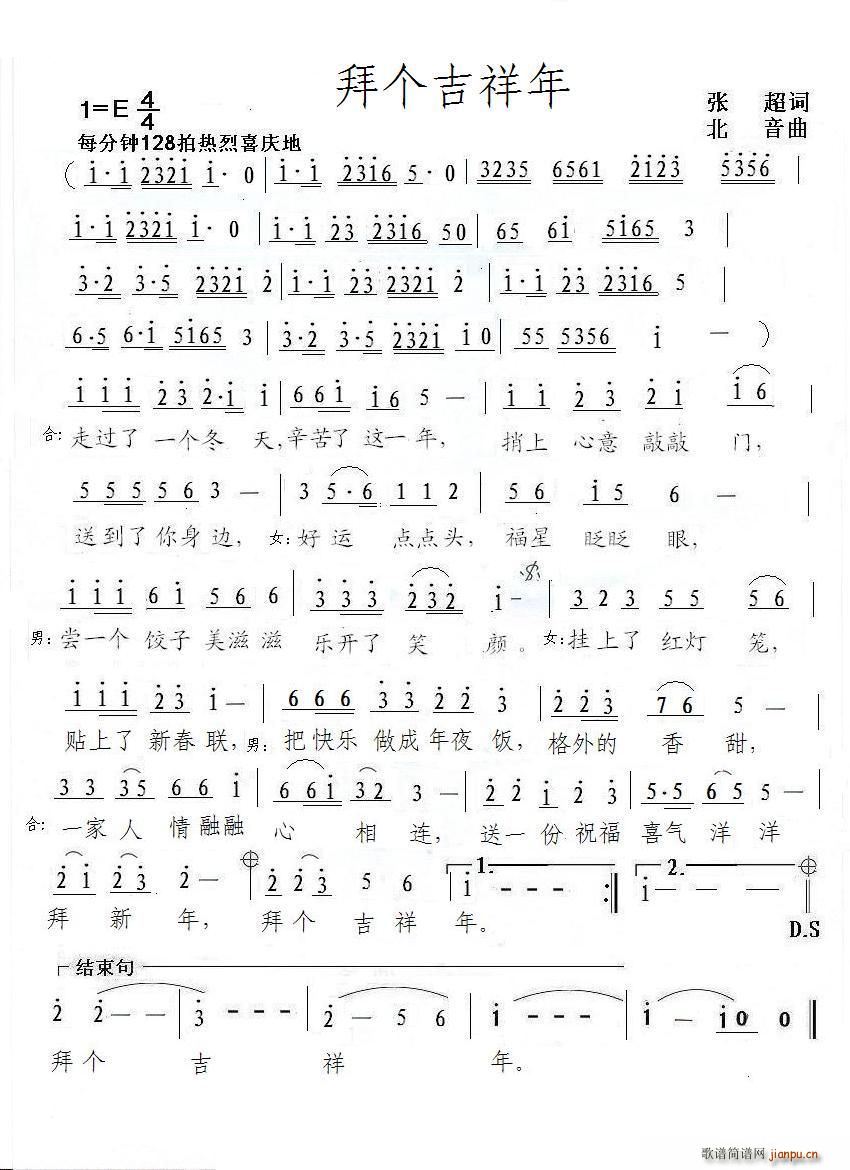 拜个吉祥年
1=E 4/4
张 超词
北 音曲
每分钟128拍热烈喜庆地
(i·i 2321 i·0 | i·i 2316 5·0 | 3235 6561 2123 5356 |
i·i 2321 i·0 | i·i 23 2316 50 | 65 6i 5i65 3 |
3·2 3·5 2321 2 | i·i 23 2321 2 | i·i 23 2316 5 |
6·5 6·i 5i65 3 | 3·2 3·5 2321 i0 | 55 5356 i — )
i i i 2 3 2·i i | 6 6 i i 6 5 — | i i 2 3 2 2 i 6 |
合: 走过了 一个冬 天,辛苦了 这一年, 捎上 心意 敲敲 门,
5 5 5 5 6 3 — | 3 5·6 1 1 2 | 5 6 i 5 6 — |
送到了你身边, 女:好运 点点头, 福星 眨眨 眼,
i i i 6 i 5 6 6 | 3 3 3 2 3 2 i – | 3 2 3 5 5 5 6 |
男: 尝一个 饺子 美滋滋 乐开了 笑 颜。 女:挂上了 红灯 笼,
i i i 2 3 i — | 6 6 6 3 3 2 2 3 | 2 2 3 7 6 5 — |
贴上了 新春联,男:把快乐 做成年夜 饭,格外的 香 甜,
3 3 3 5 6 6 i | 6 6 i 3 2 3 — | 2 2 i 2 3 | 5·5 6 5 5 |
合: 一家人 情融融 心 相 连, 送一份祝福 喜气 洋 洋
2 i 2 3 2 — | 2 2 3 5 6 | 1. i - - - :| 2. i — — — |
拜 新 年, 拜个 吉祥 年。 D.S
结束句
2 2 — — | 3 - - - | 2 — 5 6 | i - - - | i — i 0 0 ‖
拜个 吉 祥 年。
歌谱简谱网 jianpu.cn